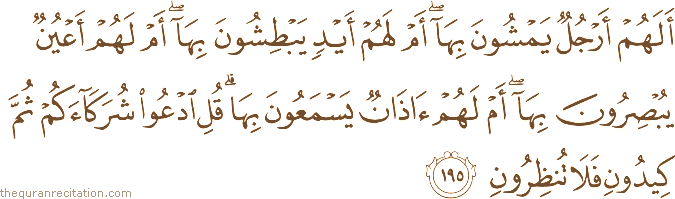 أَلَهُمۡ أَرۡجُلٞ يَمۡشُونَ بِهَآۖ أَمۡ لَهُمۡ أَيۡدٖ يَبۡطِشُونَ بِهَآۖ أَمۡ لَهُمۡ أَعۡيُنٞ
يُبۡصِرُونَ بِهَآۖ أَمۡ لَهُمۡ ءَاذَانٞ يَسۡمَعُونَ بِهَاۗ قُلِ ٱدۡعُواْ شُرَكَآءَكُمۡ ثُمَّ
كِيدُونِ فَلَا تُنظِرُونِ ١٩٥
thequranrecitation.com